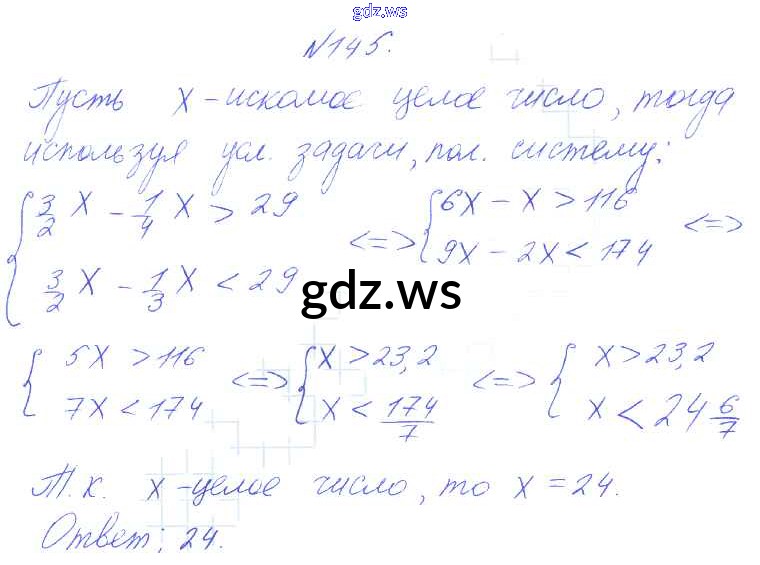 gdz.ws
№145.
Пусть x - искомое целое число, тогда
используя усл. задачи, пол. систему:
{ 3/2 x - 1/4 x > 29 <=> { 6x - x > 116 <=>
3/2 x - 1/3 x < 29 9x - 2x < 174
gdz.ws
{ 5x > 116 <=> { x > 23,2 <=> { x > 23,2
7x < 174 x < 174/7 x < 24 6/7
Т.к. x - целое число, то x = 24.
Ответ: 24.